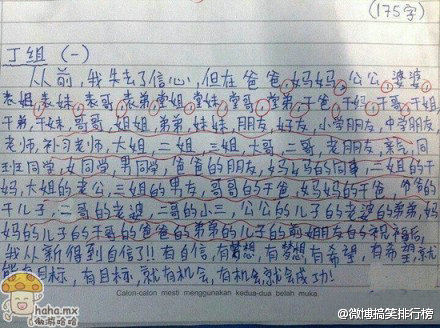 (175字)
丁组 (一)
从前,我失去了信心,但在爸爸,妈妈,公公,婆婆
表姐,表妹,表哥,表弟,堂姐,堂妹,堂哥,堂弟,干爸,干妈,干哥,干姐
干弟,干妹,哥哥,姐姐,弟弟,妹妹,朋友,好友,小学朋友,中学朋友
老师,补习老师,大姐,二姐,三姐,大哥,二哥,老友,亲戚,同
班同学,女同学,男同学,爸爸的朋友,妈妈的同事,二姐的干
妈,大姐的老公,三姐的男友,哥哥的干爸,妈妈的干爸,爸爸的
干儿子,二哥的老婆,二哥的小三,公公的儿子的老婆的弟弟,妈
妈的儿子的干爸的爸爸的弟弟的儿子的前姐夫的祝福后,
我从新得到自信了!!有自信,有梦想,有梦想,有希望,有希望,就
能有目标,有目标,就有机会,有机会就会成功!
Calon-calon mesti menggunakan kedua-dua belah muka
haha.mx
傲游哈哈
@微博搞笑排行榜